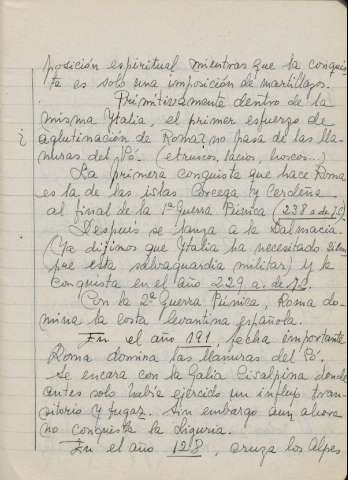 posición espiritual mientras que la conquis-
ta es solo una imposición de martillazos.
Primitivamente dentro de la
misma Ytalia, el primer esfuerzo de
¿ aglutinación de Roma? no pasa de las lla-
nuras del Pó. (etruscos, lacios, hoscos...)
La primera conquista que hace Roma
es la de las islas Córcega y Cerdeña
al final de la 1ª Guerra Púnica (238 a. de J.C)
Después se lanza a la Dalmacia.
(Ya dijimos que Ytalia ha necesitado siem-
pre esta salvaguardia militar) y la
conquista en el año 229 a. de J.C.
Con la 2ª Guerra Púnica, Roma do-
mina la costa levantina española.
En el año 191, fecha importante
Roma domina las llanuras del Pó.
Se encara con la Galia Cisalpina donde
antes solo había ejercido un influjo tran-
sitorio y fugaz. Sin embargo aun ahora
no conquista la Liguria.
En el año 128, cruza los Alpes